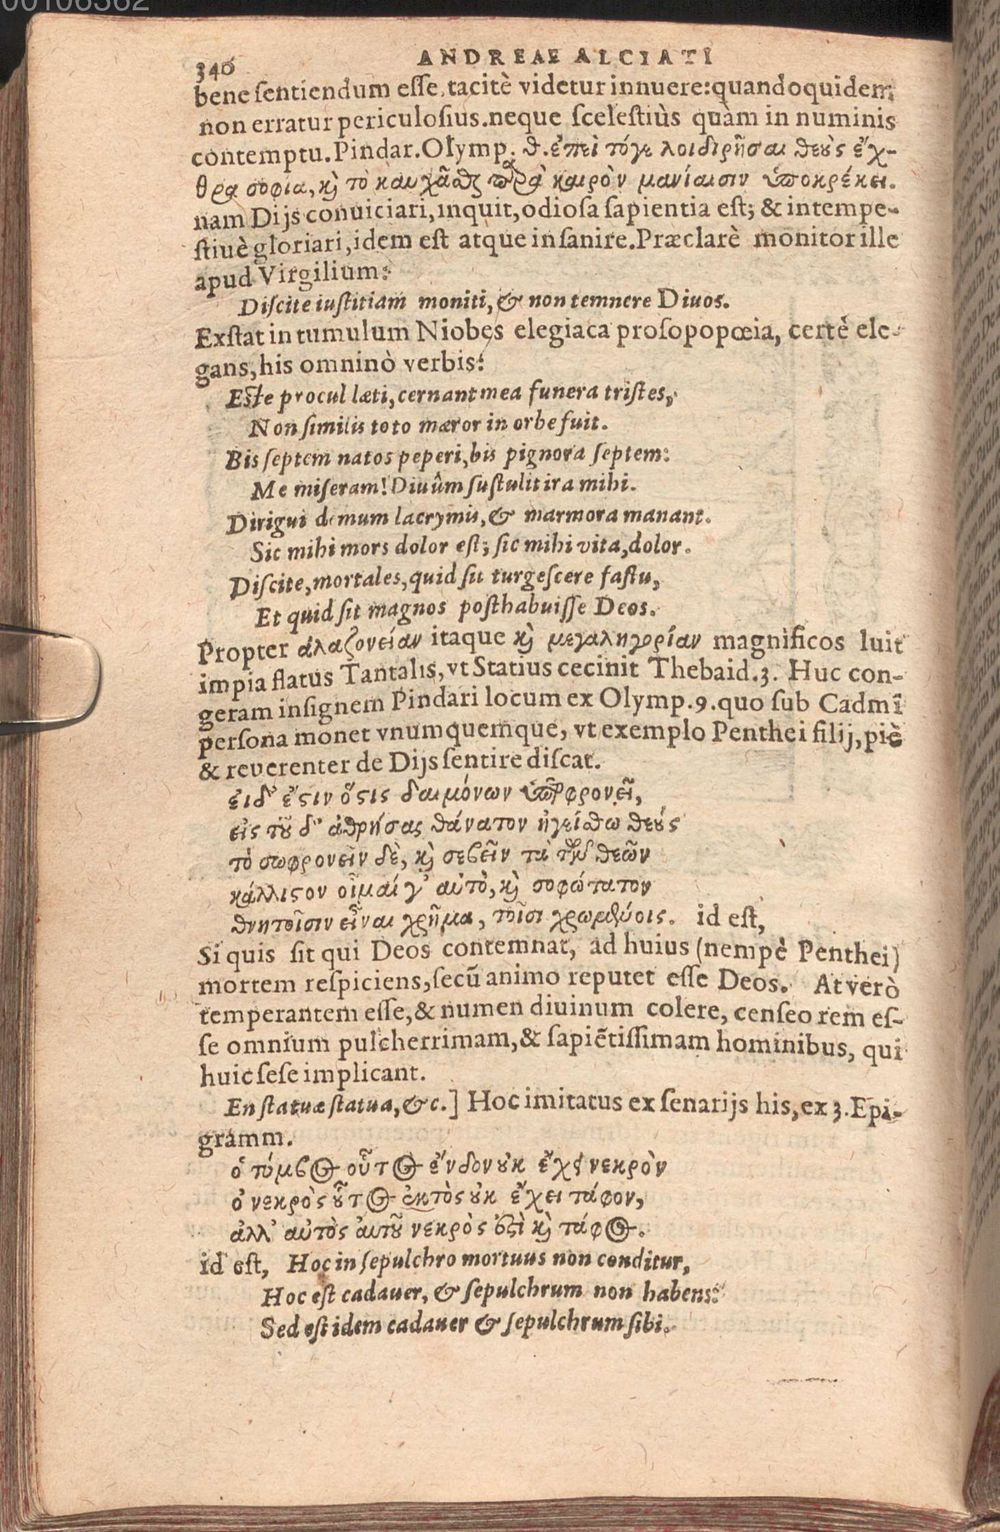 00106362
340 ANDREAE ALCIATI
bene sentiendum esse, tacitè videtur innuere: quandoquidem
non erratur periculosius. neque scelestiùs quàm in numinis
contemptu. Pindar. Olymp. θ. ἐπεὶ τόγε λοιδορῆσαι θεοὺς ἐχ-
θρα σοφία, καὶ τὸ καυχᾶσθαι παρὰ καιρὸν μανίαισιν ὑποκρέκει.
nam Dijs conuiciari, inquit, odiosa sapientia est; & intempe-
stiuè gloriari, idem est atque insanire. Præclarè monitor ille
apud Virgilium:
Discite iustitiam moniti, & non temnere Diuos.
Exstat in tumulum Niobes elegiaca prosopopœia, certè ele-
gans, his omninò verbis:
Este procul læti, cernant mea funera tristes,
Non similis toto mæror in orbe fuit.
Bis septem natos peperi, bis pignora septem:
Me miseram! Diuûm sustulit ira mihi.
Dirigui demum lacrymis, & marmora manant.
Sic mihi mors dolor est; sic mihi vita, dolor.
Discite, mortales, quid sit turgescere fastu,
Et quid sit magnos posthabuisse Deos.
Propter ἀλαζονείαν itaque καὶ μεγαληγορίαν magnificos luit
impia flatus Tantalis, vt Statius cecinit Thebaid. 3. Huc con-
geram insignem Pindari locum ex Olymp. 9. quo sub Cadmi
persona monet vnumquemque, vt exemplo Penthei filij, piè
& reuerenter de Dijs sentire discat.
εἰ δ' ἔστιν ὅστις δαιμόνων ὑπερφρονεῖ,
εἰς τοῦ δ' ἀθρήσας θάνατον ἡγείσθω θεούς
τὸ σωφρονεῖν δὲ, καὶ σεβεῖν τὰ τῶν θεῶν
κάλλιστον οἶμαί γ' αὐτὸ, καὶ σοφώτατον
θνητοῖσιν εἶναι χρῆμα, τοῖσι χρωμένοις. id est,
Si quis sit qui Deos contemnat, ad huius (nempè Penthei)
mortem respiciens, secũ animo reputet esse Deos. At verò
temperantem esse, & numen diuinum colere, censeo rem es-
se omnium pulcherrimam, & sapiẽtissimam hominibus, qui
huic sese implicant.
En statuæ statua, &c.] Hoc imitatus ex senarijs his, ex 3. Epi-
gramm.
ὁ τύμβος οὗτος ἔνδον οὐκ ἔχει νεκρὸν
ὁ νεκρὸς οὗτος ἐκτὸς οὐκ ἔχει τάφον,
ἀλλ' αὐτὸς αὑτοῦ νεκρὸς ἐστὶ καὶ τάφος.
id est, Hoc in sepulchro mortuus non conditur,
Hoc est cadauer, & sepulchrum non habens:
Sed est idem cadauer & sepulchrum sibi.